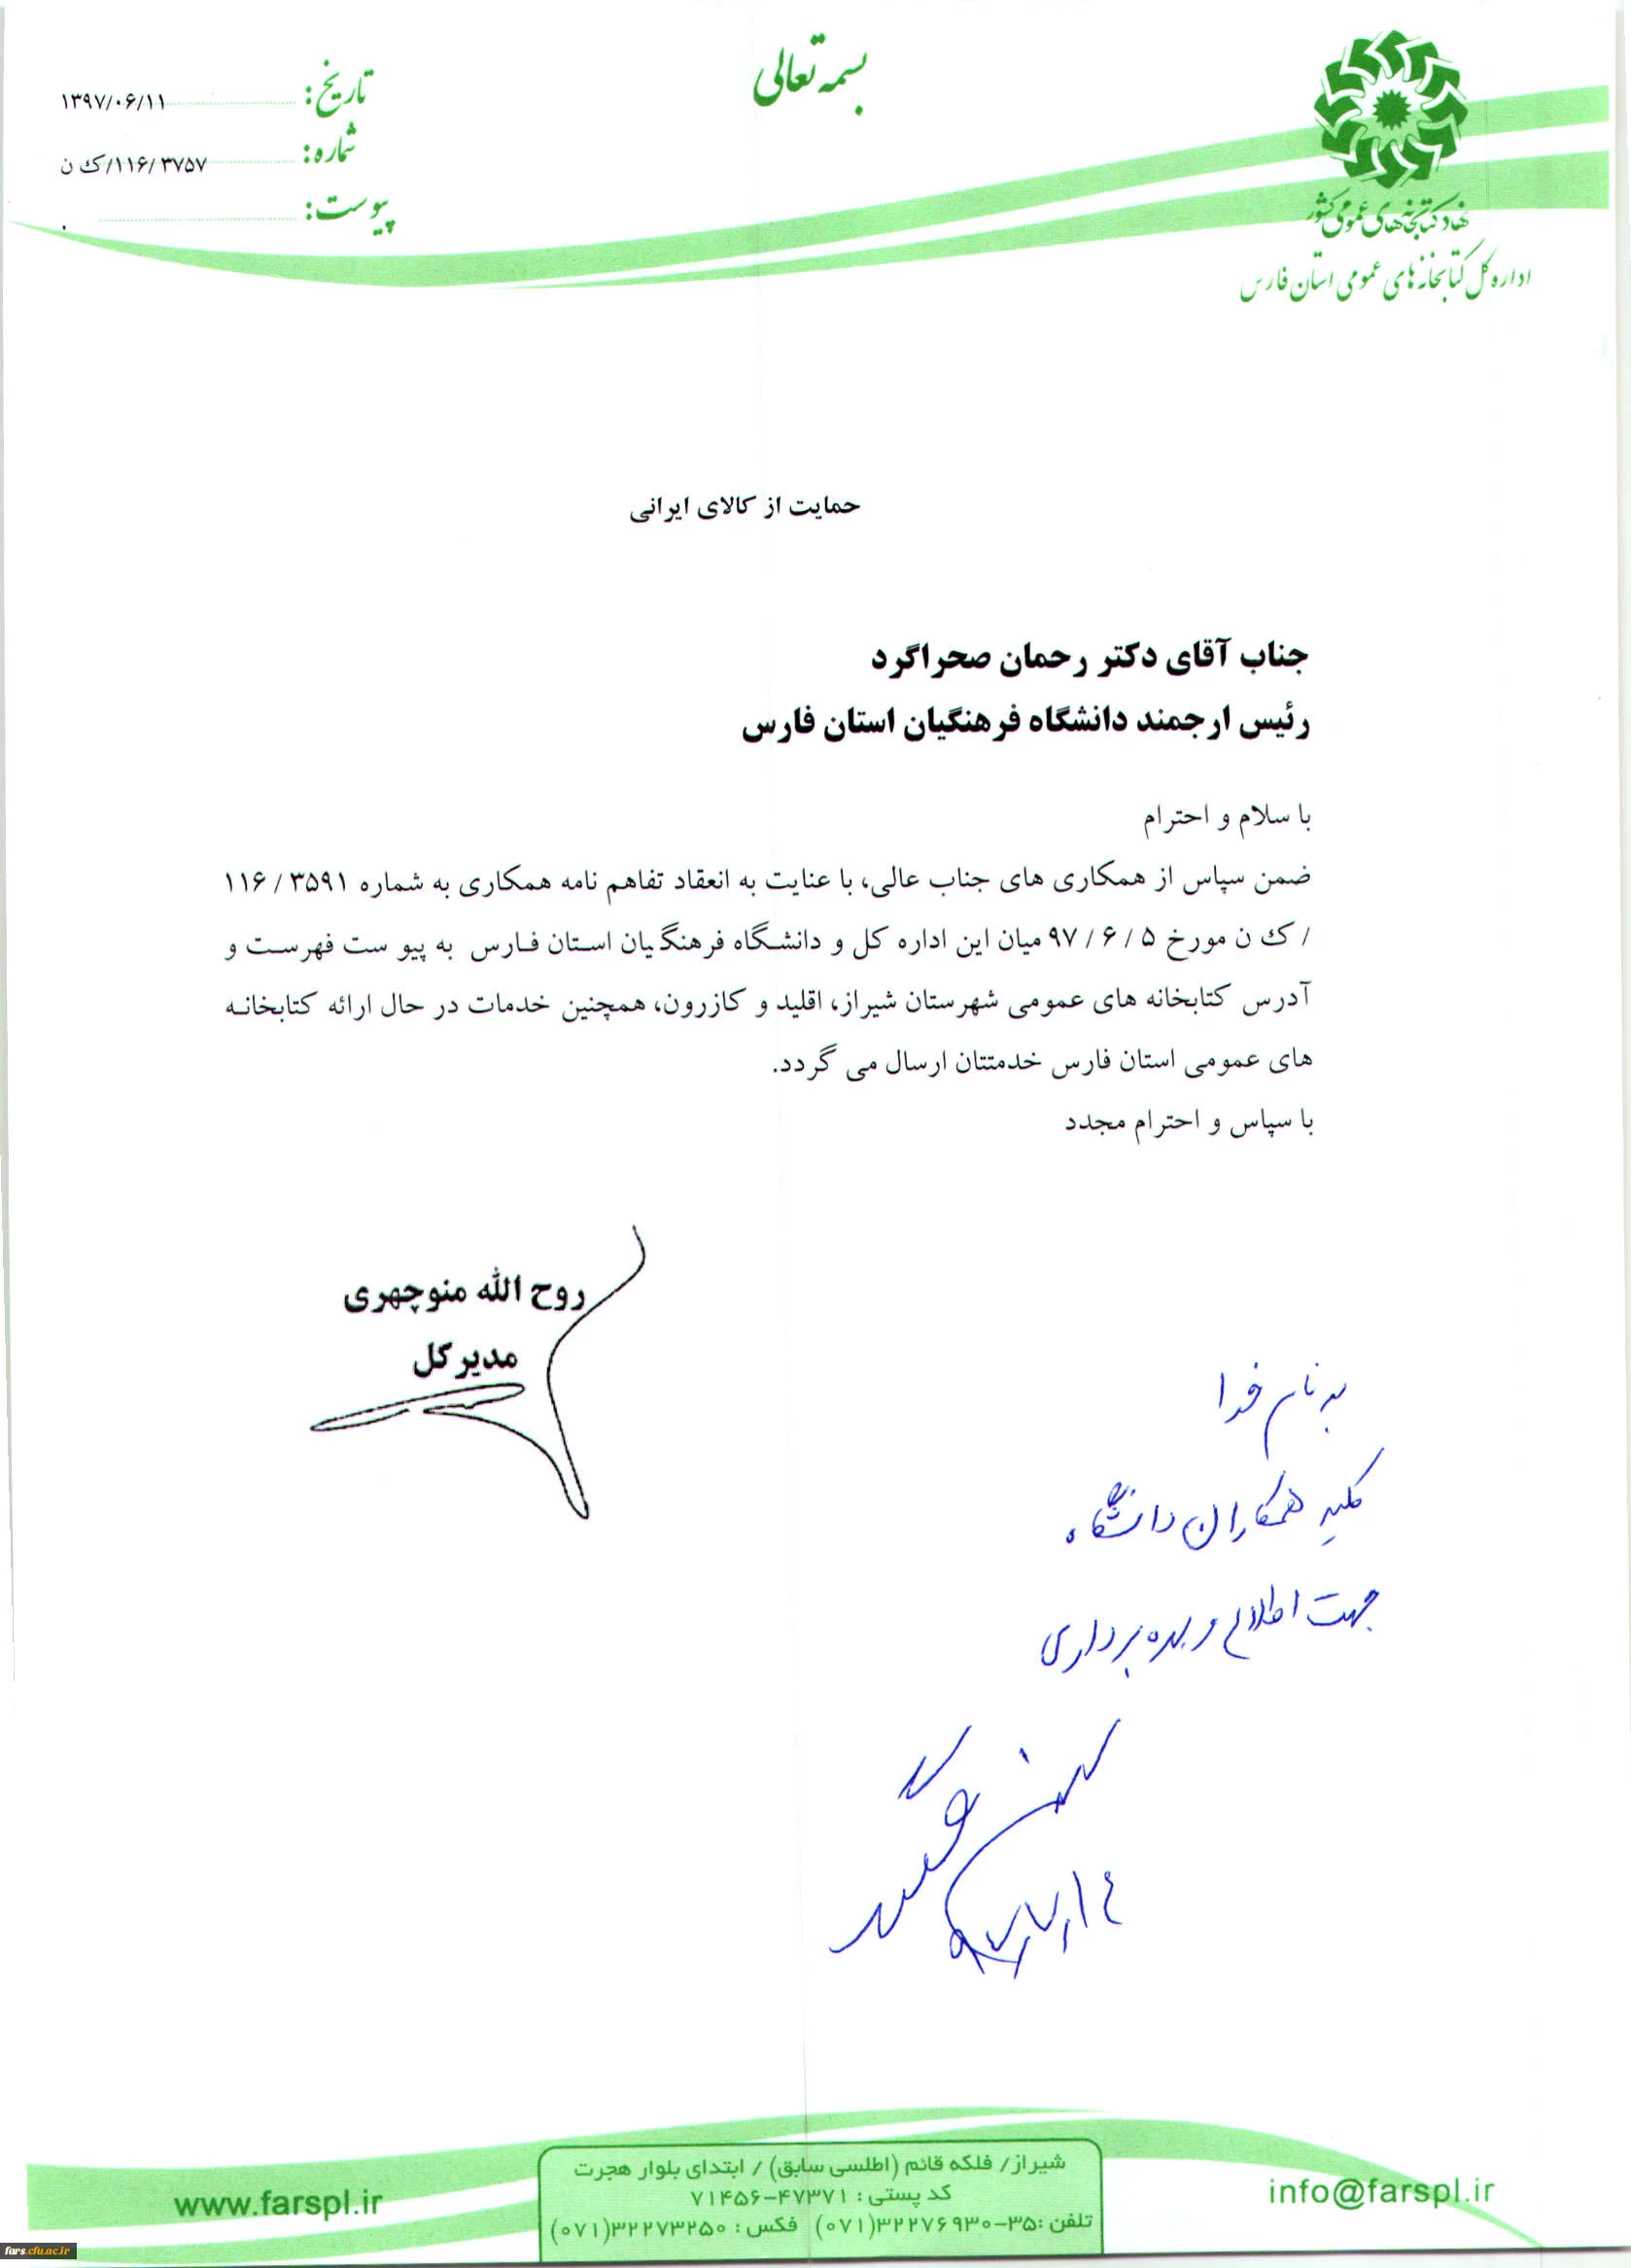 بسمه تعالی
نهاد کتابخانه‌های عمومی کشور
اداره کل کتابخانه های عمومی استان فارس
تاریخ: ۱۳۹۷/۰۶/۱۱
شماره: ۱۱۶/۳۷۵۷/ک ن
پیوست: ۰
حمایت از کالای ایرانی
جناب آقای دکتر رحمان صحراگرد
رئیس ارجمند دانشگاه فرهنگیان استان فارس
با سلام و احترام
ضمن سپاس از همکاری های جناب عالی، با عنایت به انعقاد تفاهم نامه همکاری به شماره ۳۵۹۱ / ۱۱۶
/ ک ن مورخ ۵ / ۶ / ۹۷ میان این اداره کل و دانشگاه فرهنگیان استان فارس به پیو ست فهرست و
آدرس کتابخانه های عمومی شهرستان شیراز، اقلید و کازرون، همچنین خدمات در حال ارائه کتابخانه
های عمومی استان فارس خدمتتان ارسال می گردد.
با سپاس و احترام مجدد
روح الله منوچهری
مدیر کل
به نام خدا
کلیه همکاران دانشگاه
جهت اطلاع و بهره برداری
شیراز/ فلکه قائم (اطلسی سابق) / ابتدای بلوار هجرت
کد پستی : ۴۷۳۷۱-۷۱۴۵۶
تلفن :۳۵-۳۲۲۷۶۹۳۰(۰۷۱) فکس : ۳۲۲۷۳۲۵۰(۰۷۱)
www.farspl.ir
info@farspl.ir
fars.cfu.ac.ir